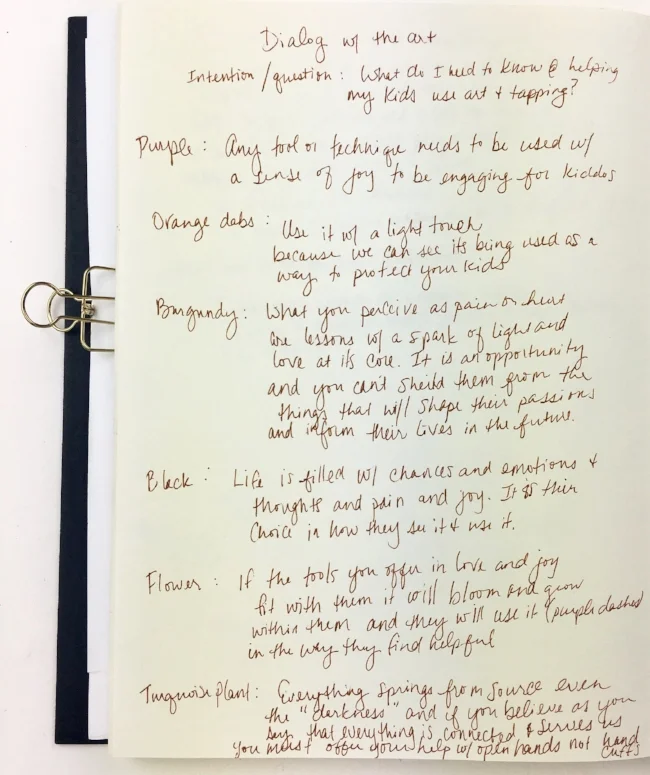 Dialog w/ the art
Intention/question: What do I need to know @ helping
my kids use art & tapping?
Purple: Any tool or technique needs to be used w/
a sense of joy to be engaging for kiddos
Orange dabs: Use it w/ a light touch
because we can see its being used as a
way to protect your kids
Burgundy: What you perceive as pain or hurt
are lessons w/ a spark of light and
love at its core. It is an opportunity
and you can't sheild them from the
things that will shape their passions
and inform their lives in the future.
Black: Life is filled w/ chances and emotions &
thoughts and pain and joy. It is their
choice in how they see it & use it.
Flower: If the tools you offer in love and joy
fit with them it will bloom and grow
within them and they will use it (purple dashes)
in the way they find helpful
Turquoise plant: Everything springs from source even
the "darkness" and if you believe as you
say that everything is connected & serves us
you must offer your help w/ open hands not hand
cuffs